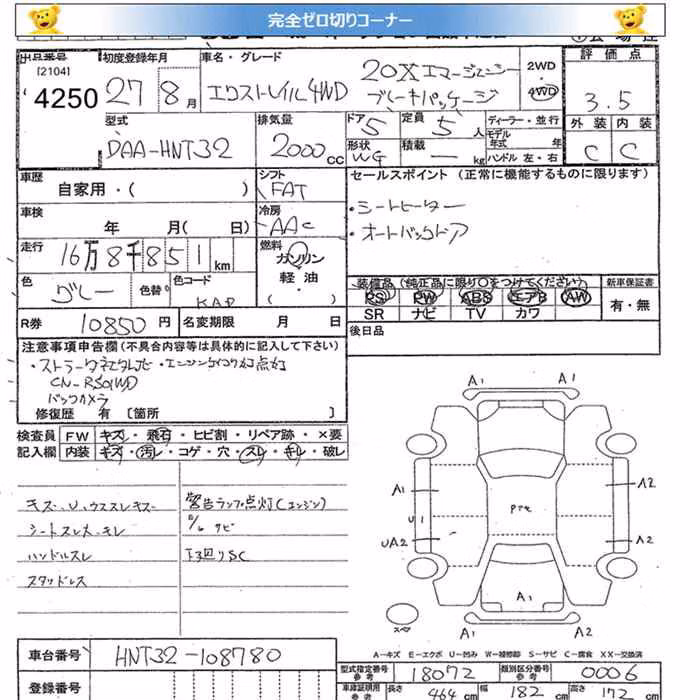 完全ゼロ切りコーナー
出品番号 初度登録年月 車名・グレード 評価点
[2104]
4250 27 8月 エクストレイル4WD 20Xエマージェンシーブレーキパッケージ 2WD・4WD 3.5
型式 排気量 ドア 5 定員 5人 ディーラー・並行 外装 内装
DAA-HNT32 2000cc 形状 WG 積載 ― kg モデル年式 年 ハンドル 左・右 C C
車歴 自家用・( ) シフト FAT セールスポイント (正常に機能するものに限ります)
車検 年 月( 日) 冷房 AAC ・シートヒーター
・オートバックドア
走行 16万8千851km 燃料 ガソリン 軽油・( )
色 グレー 色替 色コード KAD 装備品(純正品に限り○をつけてください) 新車保証書
PS PW ABS エアB AW 有・無
SR ナビ TV カワ
R券 10850円 名変期限 月 日 後日品
注意事項申告欄(不具合内容等は具体的に記入して下さい)
CN-RS01WD
バックカメラ
修復歴 有 〔箇所 〕
検査員 FW キズ・飛石・ヒビ割・リペア跡・×要
記入欄 内装 キズ・汚レ・コゲ・穴・スレ・キレ・破レ
キズ、U、ウススレキズ 警告ランプ点灯(エンジン)
シートスレ大・キレ サビ
ハンドルスレ 下回りSC
スタッドレス
A1 A1
A1 A2
U1
UA2 A2
Pte
A1
スペア A1 A1
A-キズ E-エクボ U-凹み W-補修跡 S-サビ C-腐食 XX-交換済
車台番号 HNT32-108780
型式指定番号 参考 18072 類別区分番号 参考 0006
登録番号 車庫証明用 参考 長さ 464cm 幅 182cm 高さ 172cm